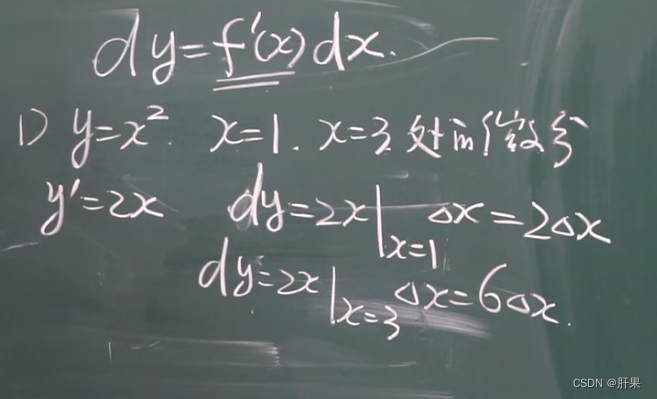 dy=f'(x)dx.
1) y=x². x=1. x=3 处的微分
y'=2x dy=2x|x=1 △x=2△x
dy=2x|x=3 △x=6△x.
CSDN @肝果